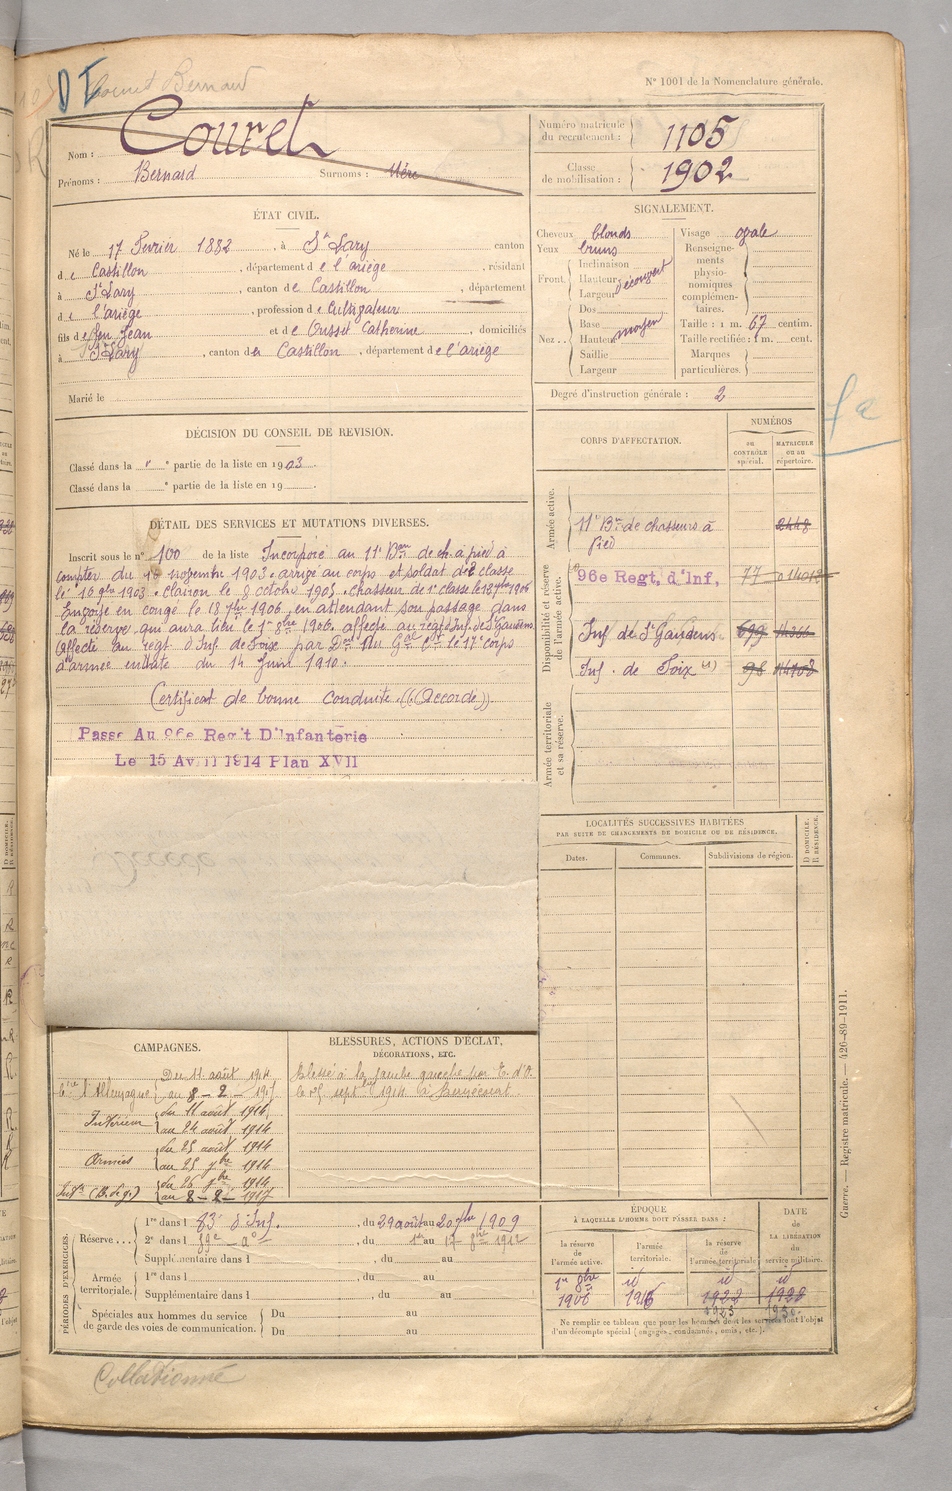 Couret Bernard
N° 1001 de la Nomenclature générale.
Nom : Couret
Prénoms : Bernard Surnoms :
Numéro matricule du recrutement : 1105
Classe de mobilisation : 1902
ÉTAT CIVIL.
Né le 17 Fevrier 1882, à St Lary canton
de Castillon, département de l'ariège, résidant
à St Lary, canton de Castillon, département
de l'ariège, profession de Cultivateur
fils de feu Jean et de Ousset Catherine, domiciliés
à St Lary, canton de Castillon, département de l'ariège
Marié le
SIGNALEMENT.
Cheveux blonds
Yeux bruns
Front Inclinaison
Hauteur découvert
Largeur
Nez Dos
Base
Hauteur moyen
Saillie
Largeur
Visage ovale
Renseignements physionomiques complémentaires.
Taille : 1 m. 67 centim.
Taille rectifiée : 1 m. cent.
Marques particulières.
Degré d'instruction générale : 2
DÉCISION DU CONSEIL DE REVISION.
Classé dans la " " partie de la liste en 1903.
Classé dans la e partie de la liste en 19
DÉTAIL DES SERVICES ET MUTATIONS DIVERSES.
Inscrit sous le n° 100 de la liste Incorporé au 11e Bon de ch. à pied à
compter du 16 novembre 1903. arrivé au corps et soldat de 2e classe
le 16 9bre 1903. clairon le 8 octobre 1905. chasseur de 1e classe le 18 7bre 1906
Envoyé en congé le 18 7bre 1906, en attendant son passage dans
la réserve qui aura lieu le 1er 8bre 1906. affecté au regt d'Inf. de St Gaudens
Affecté au Régt d'Inf. de Foix par Don du Gal Ct le 17e corps
d'armée en date du 14 Juin 1910.
Certificat de bonne conduite "Accordé".
Passe Au 96e Reg't D'Infanterie
Le 15 Avril 1914 Plan XVII
CORPS D'AFFECTATION.
NUMÉROS
au CONTRÔLE spécial.
MATRICULE ou au répertoire.
Armée active.
11e Bon de chasseurs à pied 2448
Disponibilité et réserve de l'armée active.
96e Regt, d'Inf, 77
Inf de St Gaudens 699
Inf. de Foix 98
Armée territoriale et sa réserve.
LOCALITÉS SUCCESSIVES HABITÉES
PAR SUITE DE CHANGEMENTS DE DOMICILE OU DE RÉSIDENCE.
Dates. Communes. Subdivisions de région. D DOMICILE. R RÉSIDENCE.
CAMPAGNES.
Contre l'Allemagne Du 11 août 1914
au 8 - 2 - 1917
Intérieur du 11 août 1914
au 24 août 1914
Armées du 25 août 1914
au 25 7bre 1914
du 26 7bre 1914
au 8 - 2 - 1917
BLESSURES, ACTIONS D'ÉCLAT, DÉCORATIONS, ETC.
Blessé à la jambe gauche par E. d'O.
le 25 septbre 1914
PÉRIODES D'EXERCICES.
Réserve... 1re dans l 83e d'Inf., du 29 août au 20 7bre 1909
2e dans l, du 1er au 17 8bre 1912
Supplémentaire dans l, du au
Armée territoriale. 1re dans l, du au
Supplémentaire dans l, du au
Spéciales aux hommes du service de garde des voies de communication. Du au
Du au
ÉPOQUE À LAQUELLE L'HOMME DOIT PASSER DANS :
la réserve de l'armée active. l'armée territoriale. la réserve de l'armée territoriale.
DATE de LA LIBÉRATION du service militaire.
1er 8bre 1906 id 1916 id 1922 id 1928
Ne remplir ce tableau que pour les hommes dont les services font l'objet d'un décompte spécial (engagés, condamnés, omis, etc.).
Guerre. — Registre matricule. — 426-89-1911.
Collationné